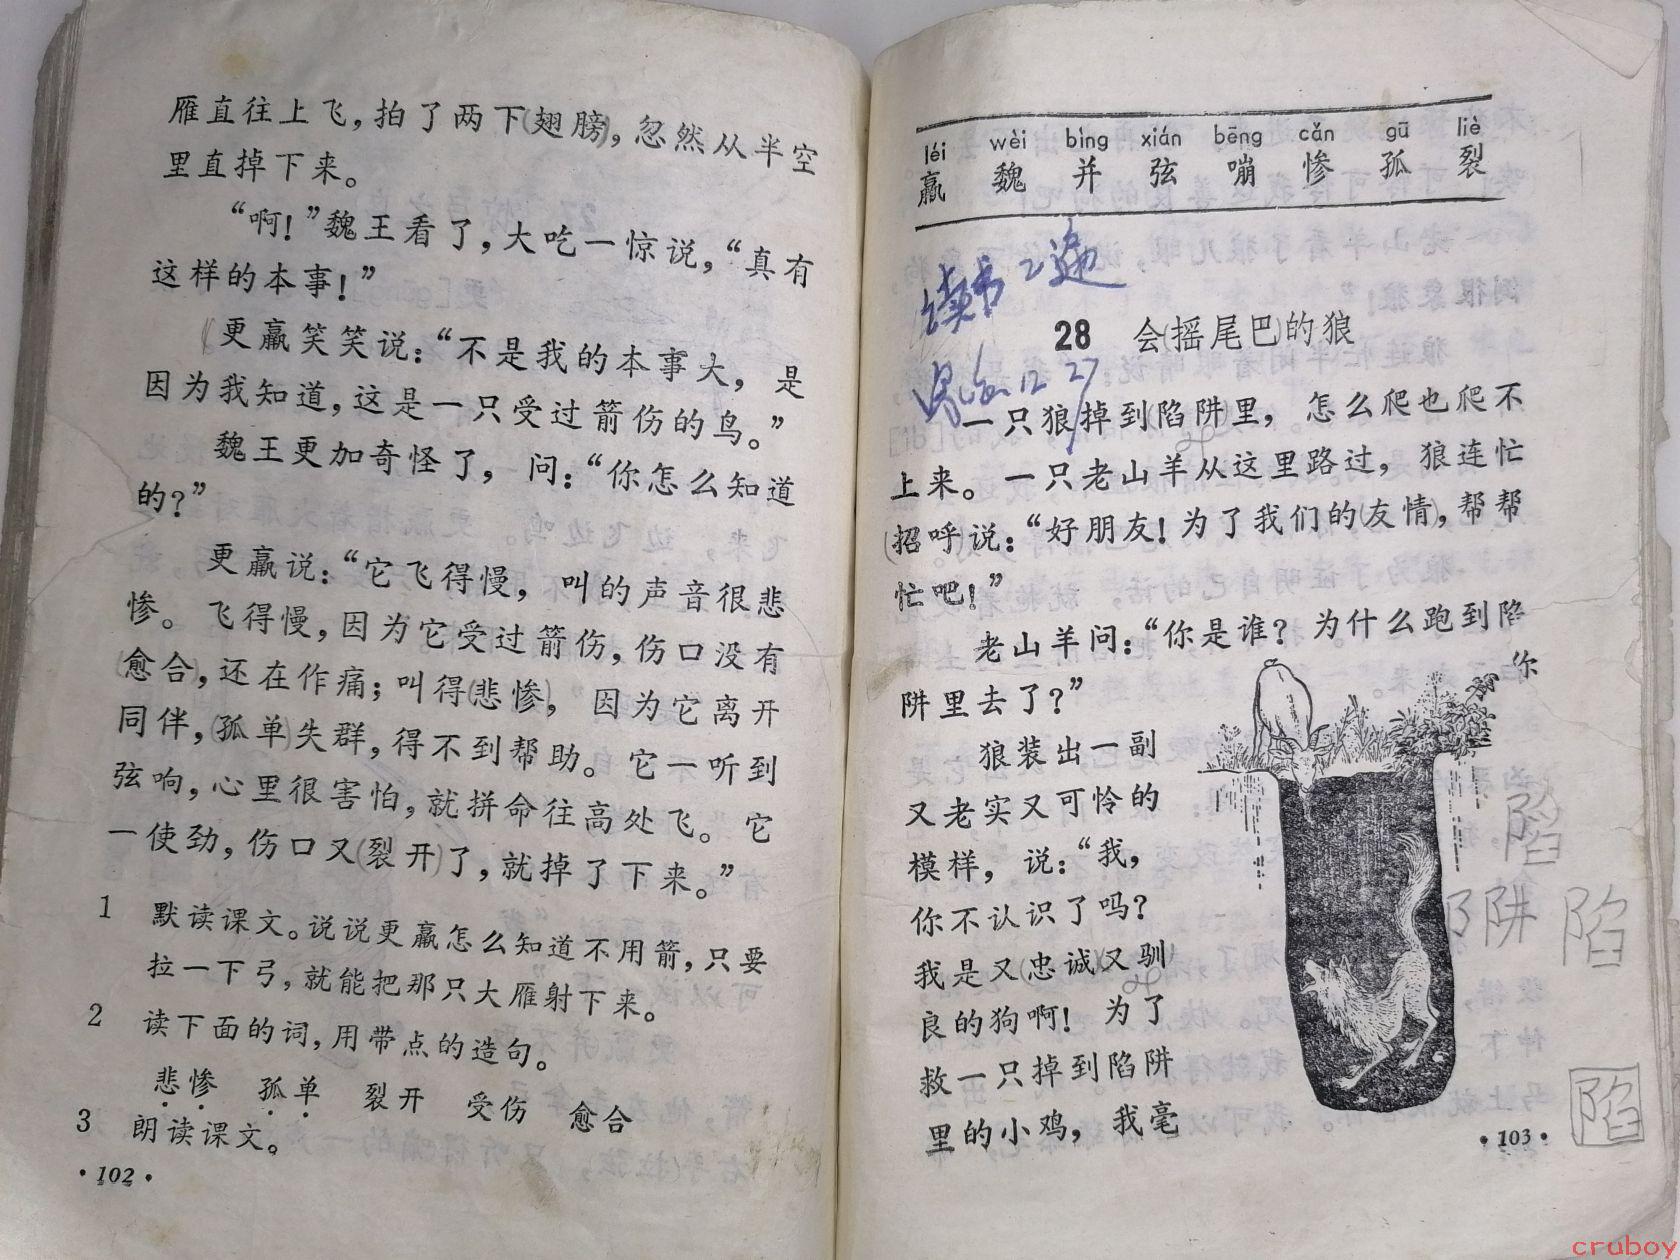 雁直往上飞，拍了两下(翅膀)，忽然从半空
里直掉下来。
“啊！”魏王看了，大吃一惊说，“真有
这样的本事！”
更羸笑笑说：“不是我的本事大，是
因为我知道，这是一只受过箭伤的鸟。”
魏王更加奇怪了，问：“你怎么知道
的？”
更羸说：“它飞得慢，叫的声音很悲
惨。飞得慢，因为它受过箭伤，伤口没有
(愈合)，还在作痛；叫得(悲惨)，因为它离开
同伴，(孤单)失群，得不到帮助。它一听到
弦响，心里很害怕，就拼命往高处飞。它
一使劲，伤口又(裂开)了，就掉了下来。”
1 默读课文。说说更羸怎么知道不用箭，只要
拉一下弓，就能把那只大雁射下来。
2 读下面的词，用带点的造句。
悲惨 孤单 裂开 受伤 愈合
3 朗读课文。
·102·
léi wèi bìng xián bēng cǎn gū liè
羸 魏 并 弦 嘣 惨 孤 裂
读书2遍
28 会(摇尾巴)的狼
12 27
一只狼掉到(陷阱)里，怎么爬也爬不
上来。一只老山羊从这里路过，狼连忙
(招呼)说：“好朋友！为了我们的(友情)，帮帮
忙吧！”
老山羊问：“你是谁？为什么跑到陷
阱里去了？”
你
狼装出一副
又老实又可怜的
模样，说：“我，
你不认识了吗？
我是又(忠诚)又驯
良的狗啊！为了
救一只掉到陷阱
里的小鸡，我毫
陷
阱 陷
陷
·103·
cruboy